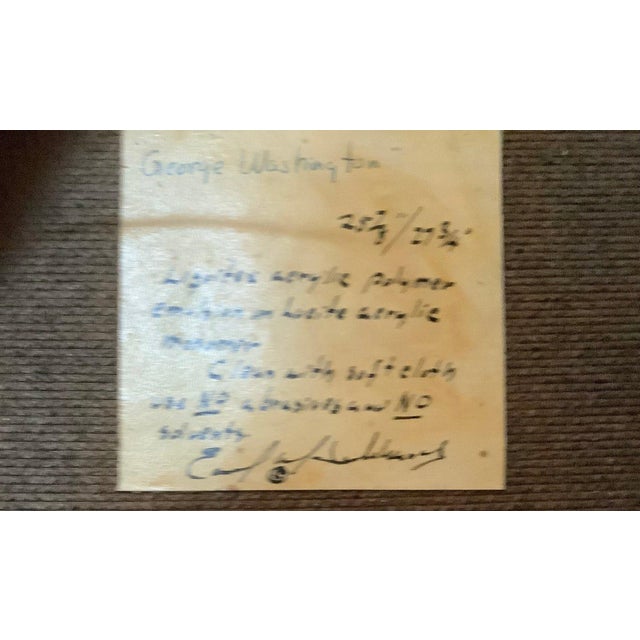 George Washington"
25 7/8"/27 3/4"
acrylic polymer
on Lucite acrylic
Clean with soft cloth
use NO abrasives and NO
solvents
©